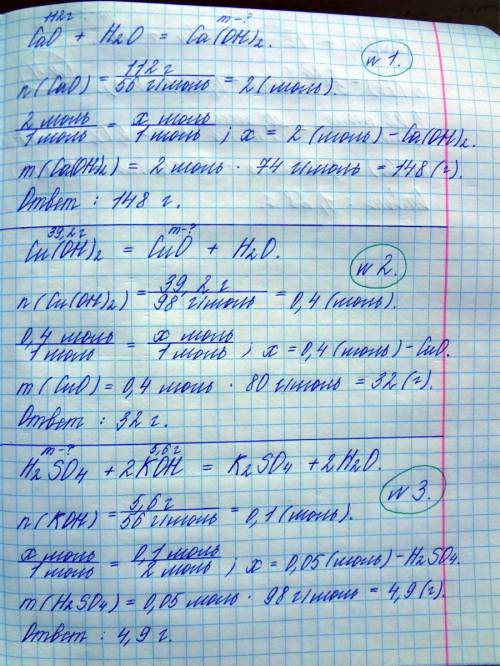 112г m-?
CaO + H₂O = Ca(OH)₂. №1.
n(CaO) = 112 г / 56 г/моль = 2 (моль).
2 моль / 1 моль = x моль / 1 моль ; x = 2 (моль) - Ca(OH)₂.
m(Ca(OH)₂) = 2 моль · 74 г/моль = 148 (г).
Ответ : 148 г.
39,2г m-?
Cu(OH)₂ = CuO + H₂O. №2.
n(Cu(OH)₂) = 39,2 г / 98 г/моль = 0,4 (моль).
0,4 моль / 1 моль = x моль / 1 моль ; x = 0,4 (моль) - CuO.
m(CuO) = 0,4 моль · 80 г/моль = 32 (г).
Ответ : 32 г.
m-? 5,6г
H₂SO₄ + 2KOH = K₂SO₄ + 2H₂O. №3.
n(KOH) = 5,6 г / 56 г/моль = 0,1 (моль).
x моль / 1 моль = 0,1 моль / 2 моль ; x = 0,05 (моль) - H₂SO₄.
m(H₂SO₄) = 0,05 моль · 98 г/моль = 4,9 (г).
Ответ : 4,9 г.